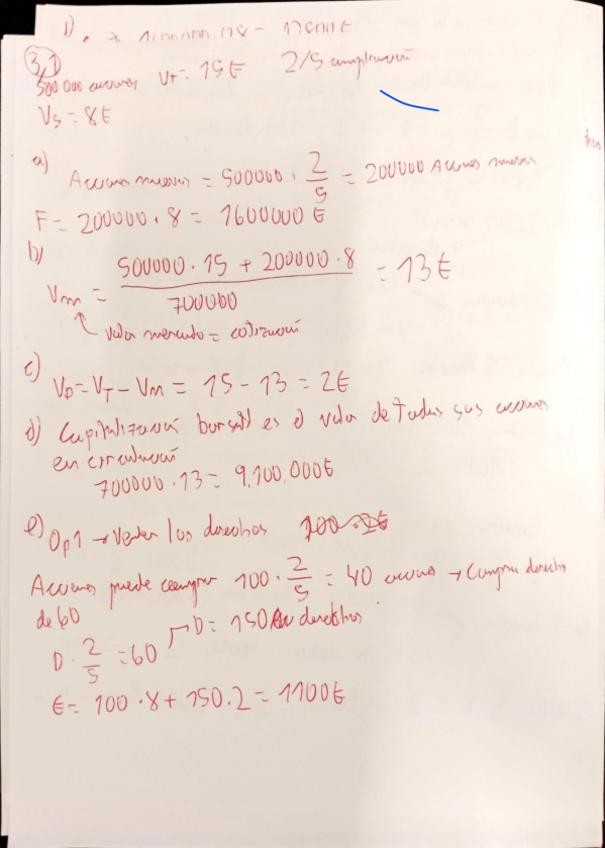 3,1
500 000 acciones VT = 15€ 2/5 ampliación
VS = 8€
a)
Acciones nuevas = 500000 · 2/5 = 200000 Acciones nuevas
F = 200000 · 8 = 1600000 €
b)
Vm = (500000 · 15 + 200000 · 8) / 700000 = 13€
valor mercado = cotización
c)
VD = VT - VM = 15 - 13 = 2€
d) Capitalización bursatil es el valor de todas sus acciones
en circulación
700000 · 13 = 9.100.000€
e) Op1 → Vender los derechos
Acciones puede comprar 100 · 2/5 = 40 acciones → Compra derechos
de 60
D · 2/5 = 60 → D = 150 derechos
€ = 100 · 8 + 150 · 2 = 1100€